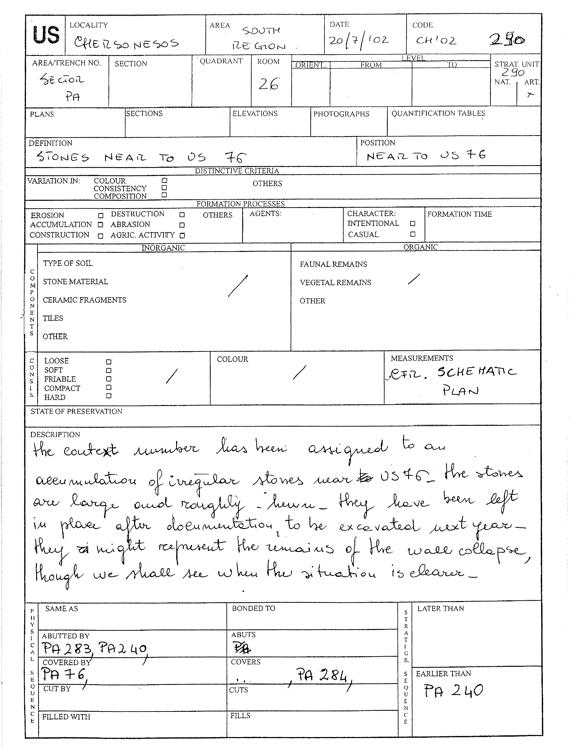 US
LOCALITY
CHERSONESOS
AREA SOUTH
REGION
DATE
20/7/'02
CODE
CH'02 290
AREA/TRENCH NO.
SECTOR
PA
SECTION
QUADRANT
ROOM
26
LEVEL
ORIENT. FROM TO
STRAT. UNIT
290
NAT. ART.
+
PLANS SECTIONS ELEVATIONS PHOTOGRAPHS QUANTIFICATION TABLES
DEFINITION
STONES NEAR TO US 76
POSITION
NEAR TO US 76
DISTINCTIVE CRITERIA
VARIATION IN: COLOUR
CONSISTENCY
COMPOSITION
OTHERS
FORMATION PROCESSES
EROSION DESTRUCTION OTHERS
ACCUMULATION ABRASION
CONSTRUCTION AGRIC. ACTIVITY
AGENTS:
CHARACTER:
INTENTIONAL
CASUAL
FORMATION TIME
COMPONENTS
INORGANIC
TYPE OF SOIL
STONE MATERIAL
CERAMIC FRAGMENTS
TILES
OTHER
/
ORGANIC
FAUNAL REMAINS
VEGETAL REMAINS
OTHER
/
CONSIS.
LOOSE
SOFT
FRIABLE
COMPACT
HARD
/
COLOUR
/
MEASUREMENTS
CFR. SCHEMATIC
PLAN
STATE OF PRESERVATION
DESCRIPTION
the context number has been assigned to an
accumulation of irregular stones near to US 76 - the stones
are large and roughly - hewn - they have been left
in place after documentation, to be excavated next year -
they might represent the remains of the wall collapse,
though we shall see when the situation is clearer -
PHYSICAL SEQUENCE
SAME AS
BONDED TO
ABUTTED BY
PA 283, PA 240,
ABUTS
COVERED BY
PA 76,
COVERS
, PA 284,
CUT BY
CUTS
FILLED WITH
FILLS
STRATIGR. SEQUENCE
LATER THAN
EARLIER THAN
PA 240